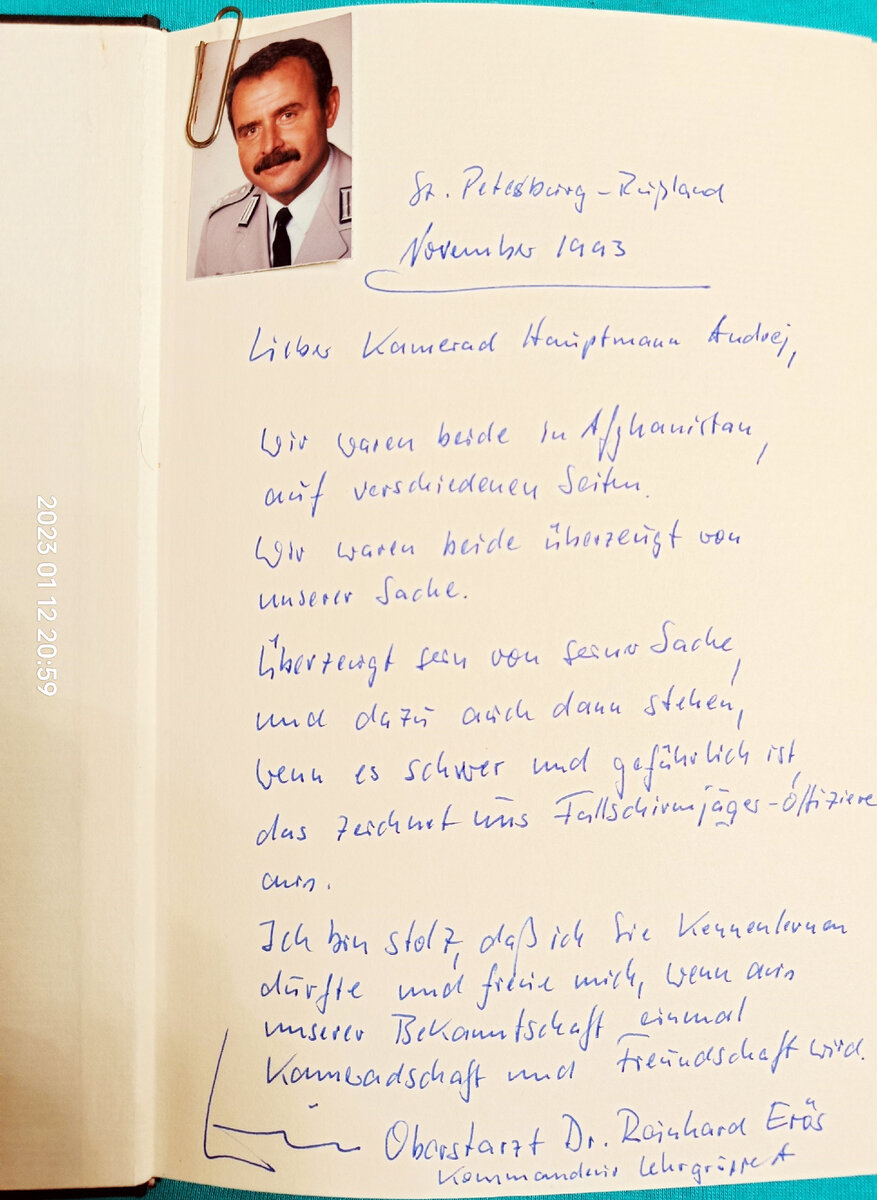 St. Petersburg - Rußland
November 1993
Lieber Kamerad Hauptmann Andrej,
Wir waren beide in Afghanistan,
auf verschiedenen Seiten.
Wir waren beide überzeugt von
unserer Sache.
Überzeugt sein von seiner Sache,
und dazu auch dann stehen,
wenn es schwer und gefährlich ist,
das zeichnet uns Fallschirmjäger-Offiziere
aus.
Ich bin stolz, daß ich Sie kennenlernen
durfte und freue mich, wenn aus
unserer Bekanntschaft einmal
Kameradschaft und Freundschaft wird.
Oberstarzt Dr. Reinhard Erös
Kommandeur Lehrgruppe A
2023 01 12 20:59